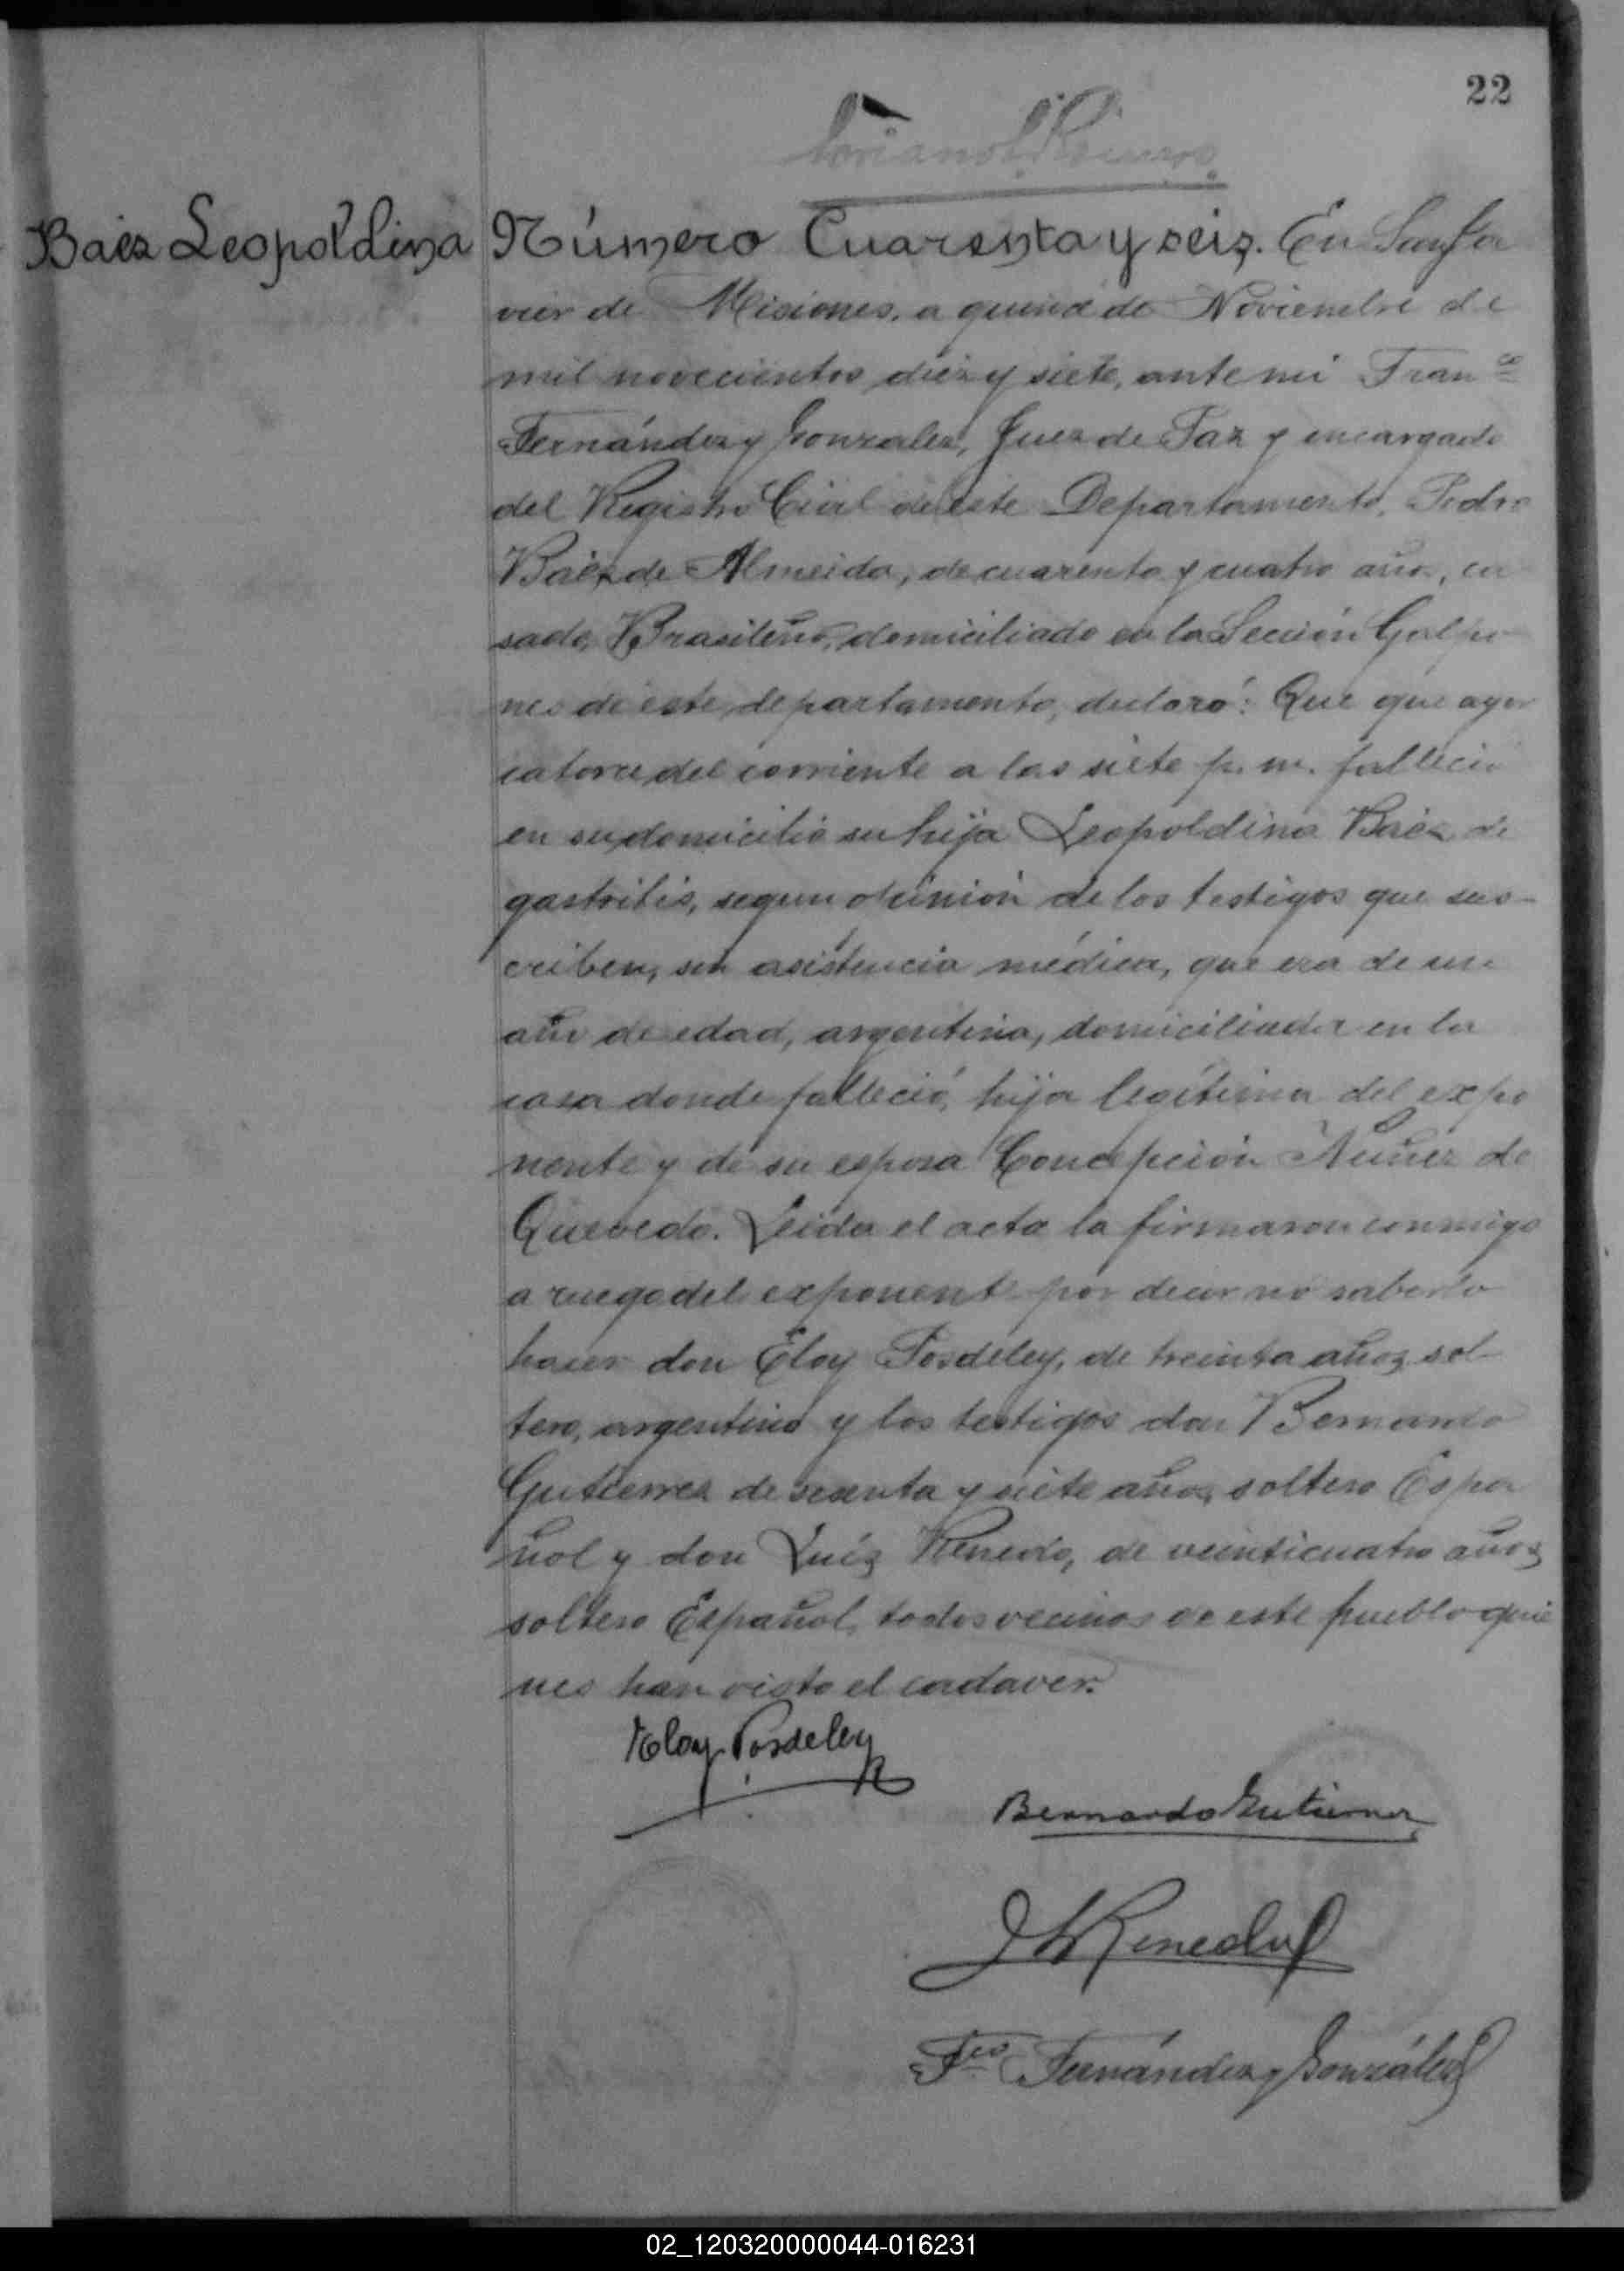 22
Baéz Leopoldina
Número Cuarenta y seis. En San Ja
vier de Misiones, a quince de Noviembre de
mil novecientos diez y siete, ante mi Fran.co
Fernández y Gonzalez, Juez de Paz y encargado
del Registro Civil de este Departamento, Pedro
Baéz de Almeida, de cuarenta y cuatro años, ca
sado, Brasileño, domiciliado en la Sección Galpo
nes de este departamento, declaró: Que que ayer
catorce del corriente a las siete p. m. falleció
en su domicilio su hija Leopoldina Baéz de
gastritis, segun opinión de los testigos que sus-
criben, sin asistencia médica, que era de un
año de edad, argentina, domiciliada en la
casa donde falleció, hija legítima del expo
nente y de su esposa Concepción Nuñez de
Quevedo. Leida el acta la firmaron conmigo
a ruego del exponente por decir no saberlo
hacer don Eloy Posdeley, de treinta años, sol-
tero, argentino y los testigos don Bernardo
Gutierrez de sesenta y siete años, soltero Espa
ñol y don Luís Renedo, de veinticuatro años
soltero Español, todos vecinos de este pueblo quie
nes han visto el cadaver.
Eloy Posdeley
Bernardo Gutierrez
L Renedo
Fco Fernández y González
02_120320000044-016231